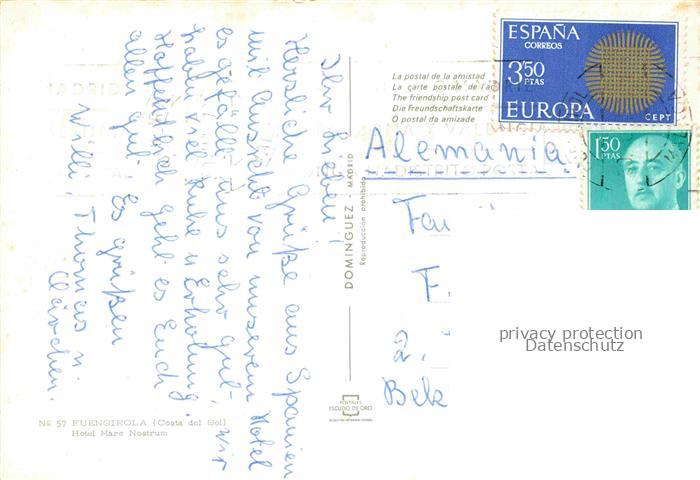 Ihr Lieben!
Herzliche Grüße aus Spanien
mit Aussicht von unserem Hotel
es gefällt uns sehr gut, wir
haben viel Ruhe u Erholung.
Hoffentlich geht es Euch
allen gut. Es grüßen
Willi, Thomas u.
Klärchen.
Nº 57 FUENGIROLA (Costa del Sol)
Hotel Mare Nostrum
DOMINGUEZ - MADRID
Reproducción prohibida
POSTALES
ESCUDO DE ORO
La postal de la amistad
La carte postale de l'a
The friendship post card
Die Freundschaftskarte
O postal da amizade
ESPAÑA
CORREOS
3'50
PTAS
EUROPA
CEPT
1'50
PTAS
Alemania
Fa
F.
2.
Bek
privacy protection
Datenschutz